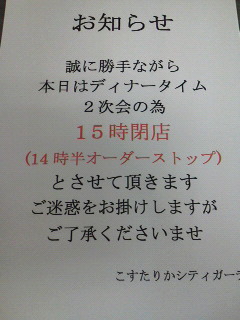 お知らせ
誠に勝手ながら
本日はディナータイム
２次会の為
１５時閉店
(14時半オーダーストップ)
とさせて頂きます
ご迷惑をお掛けしますが
ご了承くださいませ
こすたりかシティガー